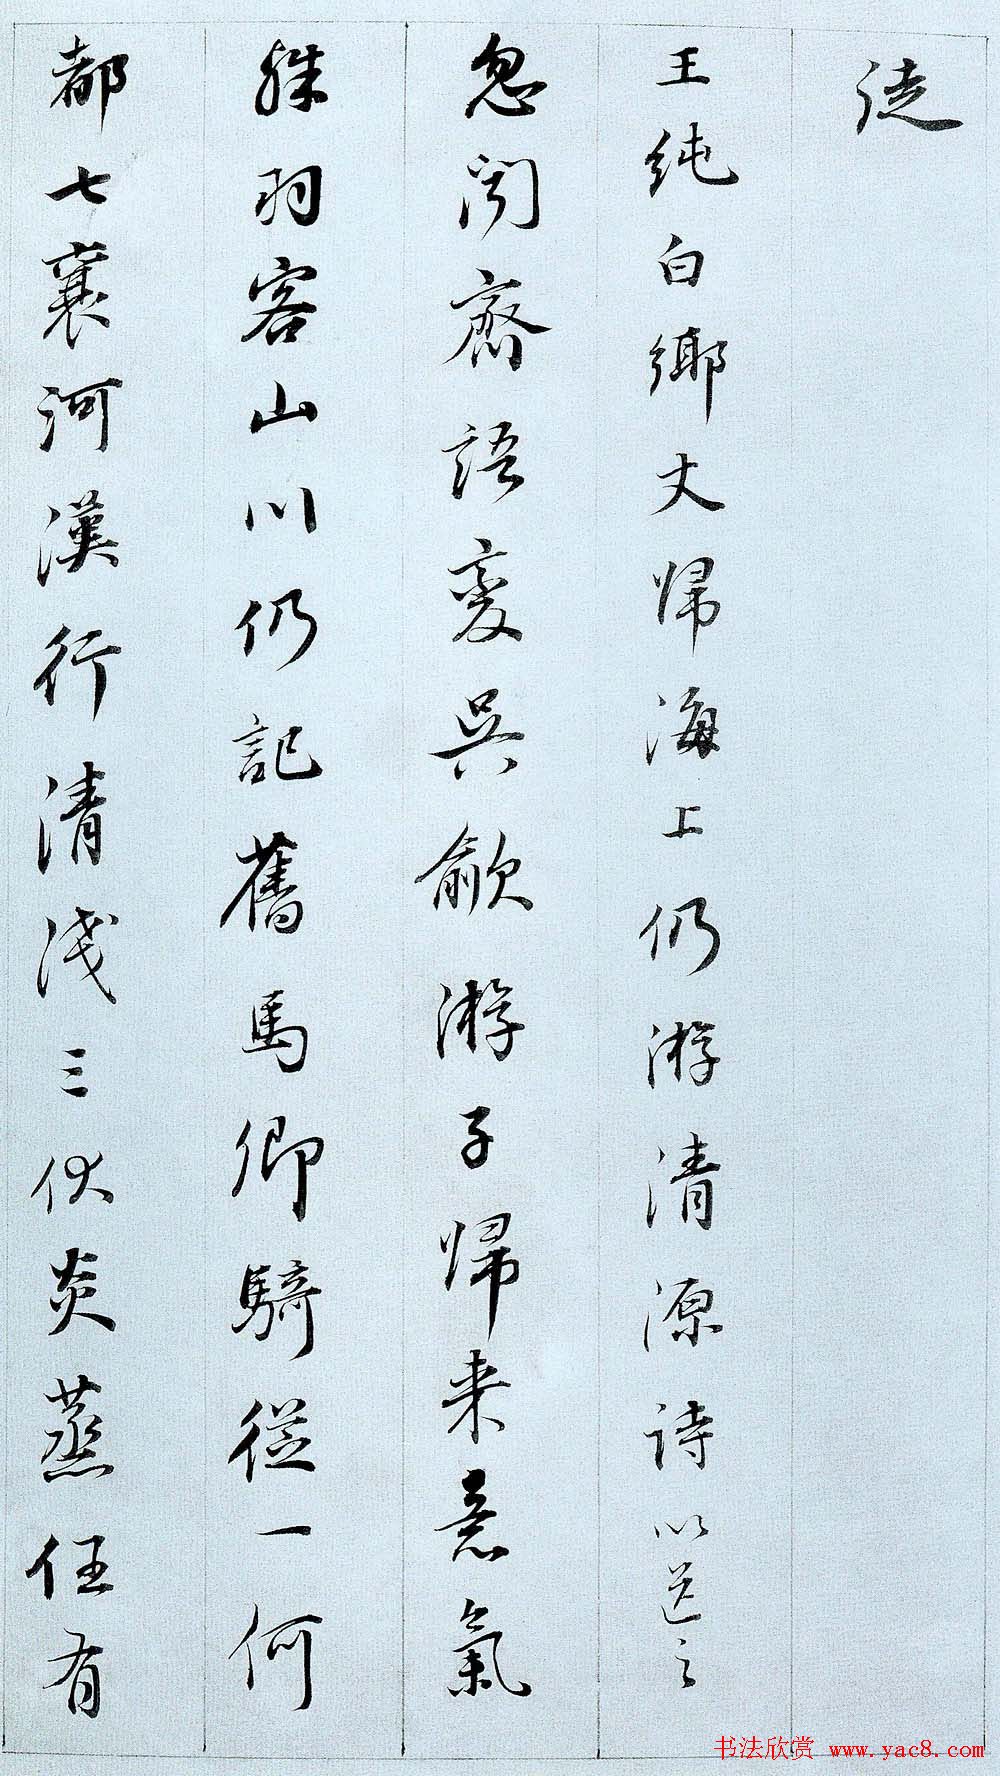 徒
王纯白鄉丈帰海上仍游清源诗以送之
忽闻齋語变吴歈游子帰来意氣
殊羽客山川仍記舊馬卿騎從一何
都七襄河漢行清浅三伏炎蒸任有
书法欣赏 www.yac8.com